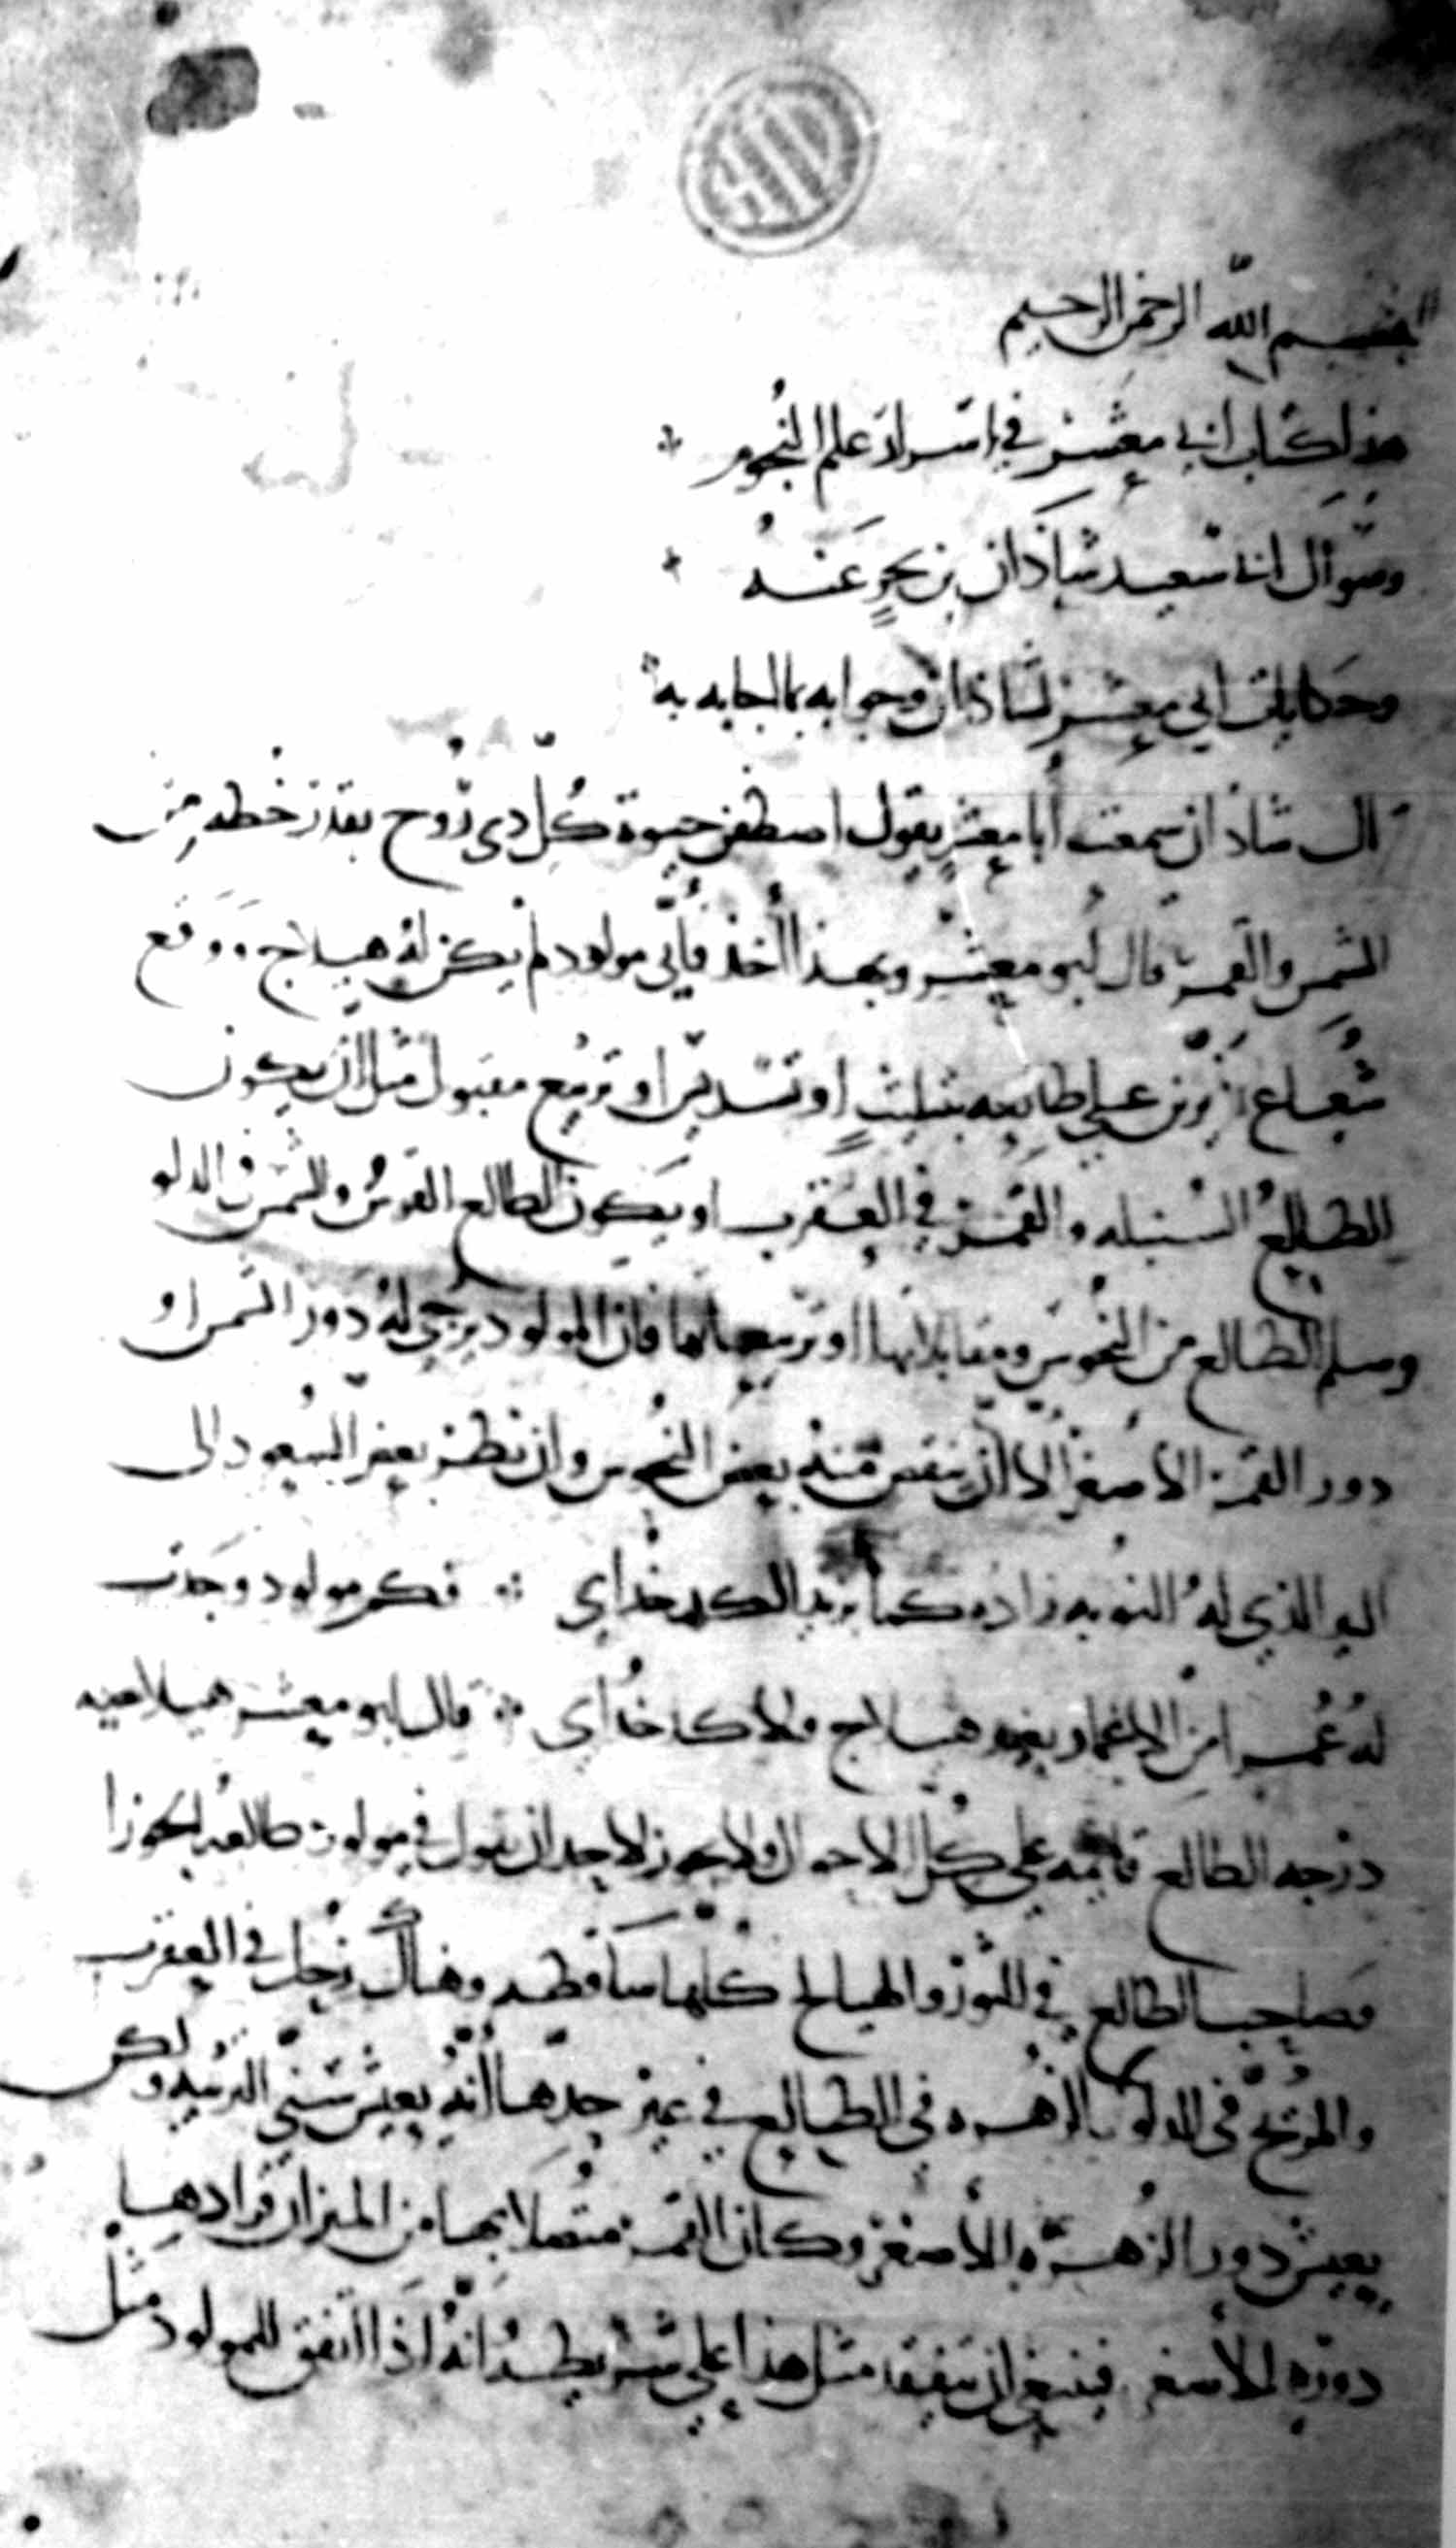 بسم الله الرحمن الرحيم
هذا كتاب ابي معشر في اسرار علم النجوم
وسؤال ابي سعيد شاذان بن بحر عنه
وحكايات ابي معشر لشاذان وجوابه بما اجابه به
قال شاذان سمعت أبا معشر يقول اصطفن حيوة كل ذي روح بقدر حظه من
الشمس والقمر قال ابو معشر وبهذا أخذ فأي مولود لم يكن له هيلاج ووقع
شعاع نير على طالعه بتثليث او تسديس او تربيع مقبول مثل ان يكون
الطالع السنبله والقمر في العقرب او يكون الطالع القوس والشمس في الدلو
وسلم الطالع من النحوس ومقابلاتها او تربيعاتها فان المولود يرجى له دور الشمس او
دور القمر الأصغر الا أن ينقص منه بعض النحوس وان نظر بعض السعود الى
النير الذي له النوبه زاده كما يزيد الكدخداي فكم مولود وجدت
له عمرا من الاعمار بغير هيلاج ولا كدخداي قال ابو معشر هيلاجيه
درجه الطالع قائمه على كل الاحوال ولا يجوز لاحد ان يقول في مولود طالعه الجوزا
وصاحب الطالع في الثور والهيالج كلها ساقطه وهناك زحل في العقرب
والمريخ في الدلو والزهره في الطالع في غير حدها أنه يعيش سني التربيه ولكن
يعيش دور الزهره الأصغر وكان القمر متصلا بها من الميزان فزادها
دوره الأصغر فينبغي ان يتفقد مثل هذا على شريطه انه اذا اتفق للمولود مثل